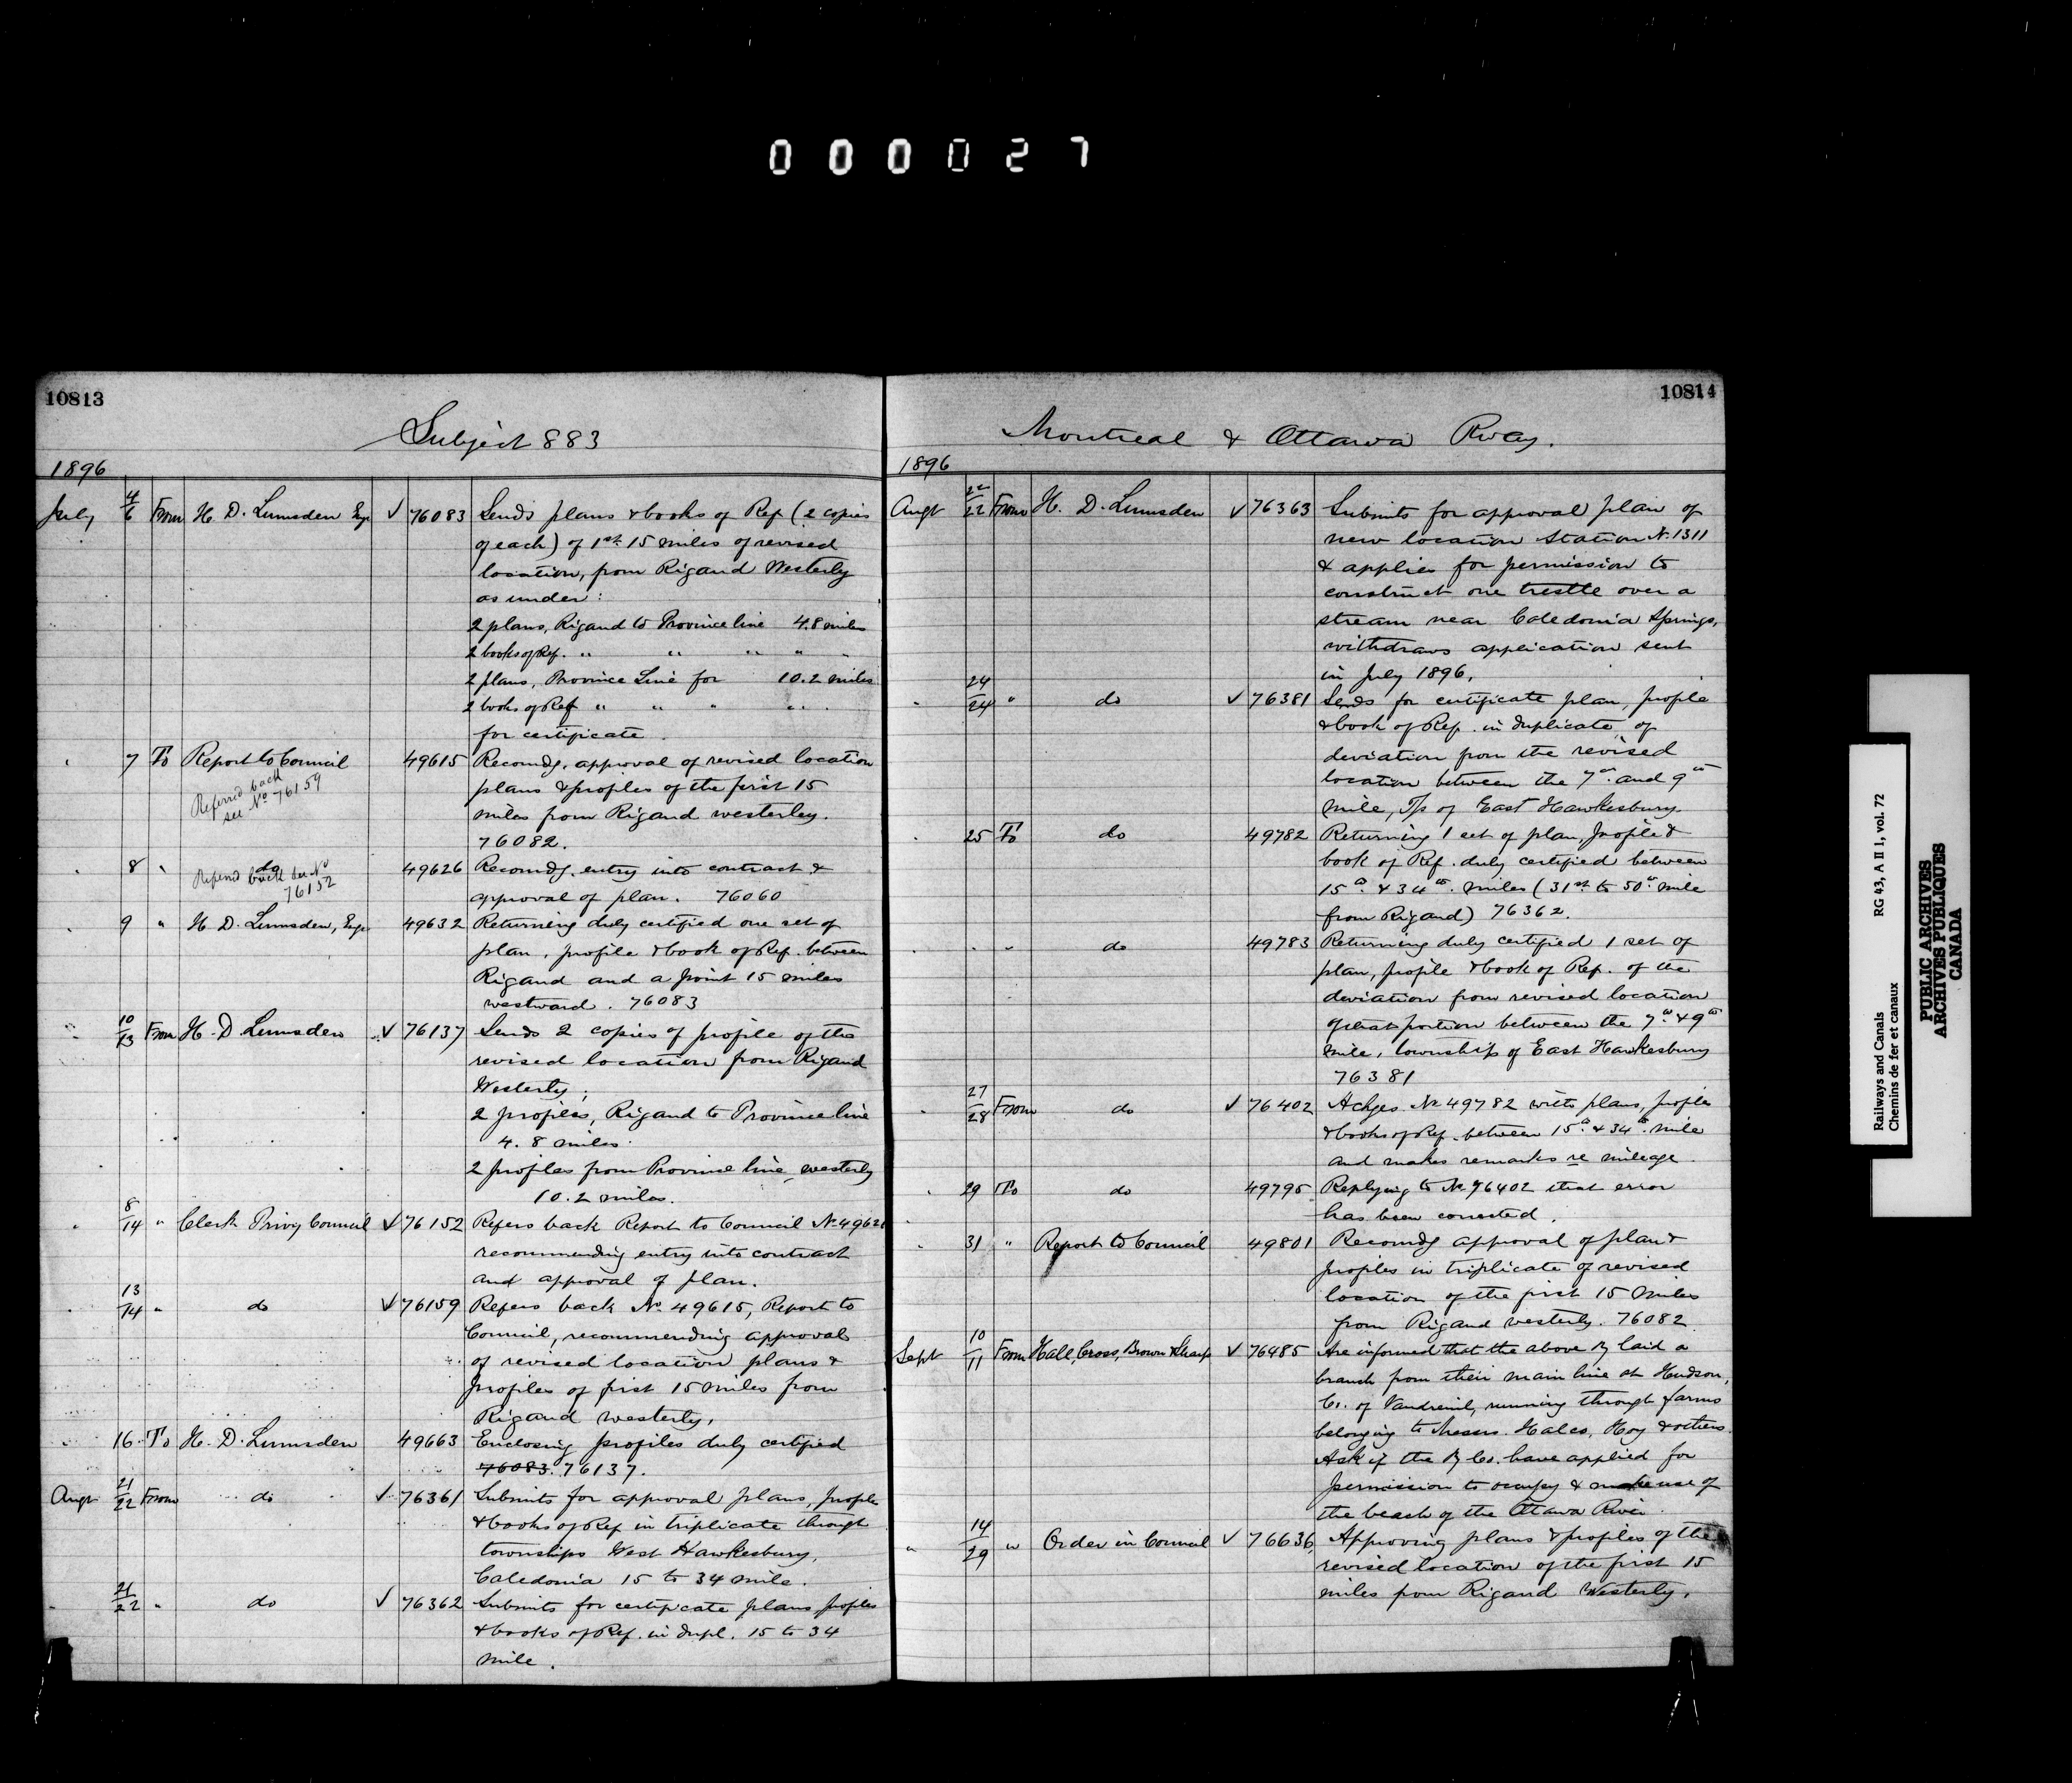 000027
10813
Subject 883
1896
July 4/6 From H. D. Lumsden Engr ✓ 76083 Sends plans & books of Ref (2 copies
of each) of 1st 15 miles of revised
location, from Rigaud Westerly
as under:
2 plans, Rigaud to Province line 4.8 miles
2 books of Ref. " " " " "
2 plans, Province Line for 10.2 miles
2 books of Ref " " " " "
for certificate.
" 7 To Report to Council 49615 Recomdg. approval of revised location
Referred back
see No 76159
plans & profiles of the first 15
miles from Rigaud westerley.
76082.
" 8 " do 49626 Recomdg. entry into contract &
Referred back see No
76152
approval of plan. 76060
" 9 " H. D. Lumsden, Engr 49632 Returning duly certified one set of
plan, profile & book of Ref. between
Rigaud and a point 15 miles
westward. 76083
" 10/13 From H. D. Lumsden ✓ 76137 Sends 2 copies of profile of the
revised location from Rigaud
Westerly;
2 profiles, Rigaud to Province line
4.8 miles.
2 profiles from Province line westerly
10.2 miles.
" 8/14 " Clerk Privy Council ✓ 76152 Refers back Report to Council No 49626
recommending entry into contract
and approval of plan.
" 13/14 " do ✓ 76159 Refers back No 49615, Report to
Council, recommending approval
of revised location plans &
profiles of first 15 miles from
Rigaud westerly.
" 16 To H. D. Lumsden 49663 Enclosing profiles duly certified
76083. 76137.
Augt 21/22 From do ✓ 76361 Submits for approval plans, profiles
& books of Ref in triplicate through
townships West Hawkesbury,
Caledonia 15 to 34 mile.
" 21/22 " do ✓ 76362 Submits for certificate plans, profiles
& books of Ref. in dupl. 15 to 34
mile.
10814
Montreal & Ottawa Rway.
1896
Augt 22/22 From H. D. Lumsden ✓ 76363 Submits for approval plan of
new location Station No 1311
& applies for permission to
construct one trestle over a
stream near Caledonia Springs,
withdraws application sent
in July 1896.
" 24/24 " do ✓ 76381 Sends for certificate plan, profile
& book of Ref. in duplicate of
deviation from the revised
location between the 7th and 9th
mile, T/p of East Hawkesbury.
" 25 To do 49782 Returning 1 set of plan, profile &
book of Ref. duly certified between
15th & 34th miles (31st to 50th mile
from Rigaud) 76362.
" " " do 49783 Returning duly certified 1 set of
plan, profile & book of Ref. of the
deviation from revised location
of that portion between the 7th & 9th
mile, township of East Hawkesbury
76381
" 27/28 From do ✓ 76402 Ackges. No 49782 with plans, profiles
& books of Ref. between 15th & 34th mile
and makes remarks re mileage.
" 29 To do 49795 Replying to No 76402 that error
has been corrected.
" 31 " Report to Council 49801 Recomdg approval of plan &
profiles in triplicate of revised
location of the first 15 miles
from Rigaud westerly. 76082
Sept 10/11 From Hall, Cross, Brown & Sharp ✓ 76485 Are informed that the above Ry laid a
branch from their main line at Hudson,
Co. of Vaudreuil, running through farms
belonging to Messrs. Hales, Hoy & others.
Ask if the Ry Co. have applied for
permission to occupy & make use of
the beach of the Ottawa River.
" 14/29 " Order in Council ✓ 76636 Approving plans & profiles of the
revised location of the first 15
miles from Rigaud Westerly.
Railways and Canals RG 43, A II 1, vol. 72
Chemins de fer et canaux
PUBLIC ARCHIVES
ARCHIVES PUBLIQUES
CANADA